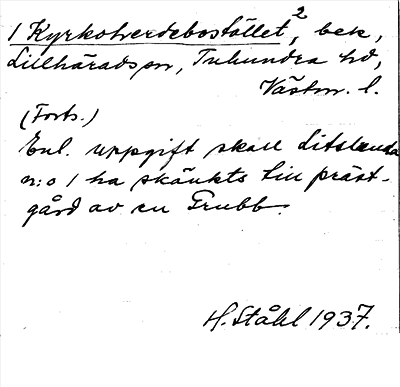 1 Kyrkoherdebostället², bek,
Lillhärads sn, Tuhundra hd,
Västm. l.
(Forts.)
Enl. uppgift skall Litslunda
n:o 1 ha skänkts till präst-
gård av en Grubb.
H. Ståhl 1937.